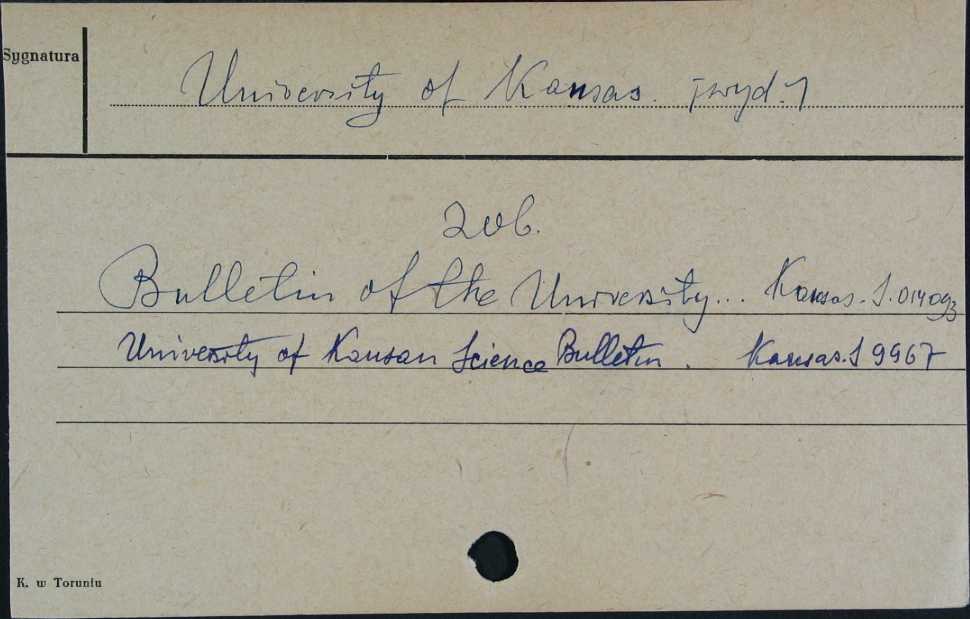 Sygnatura
University of Kansas. [wyd.]
zob.
Bulletin of the University... Kansas. S.014093
University of Kansan Science Bulletin. Kansas.S 9967
K. w Toruniu